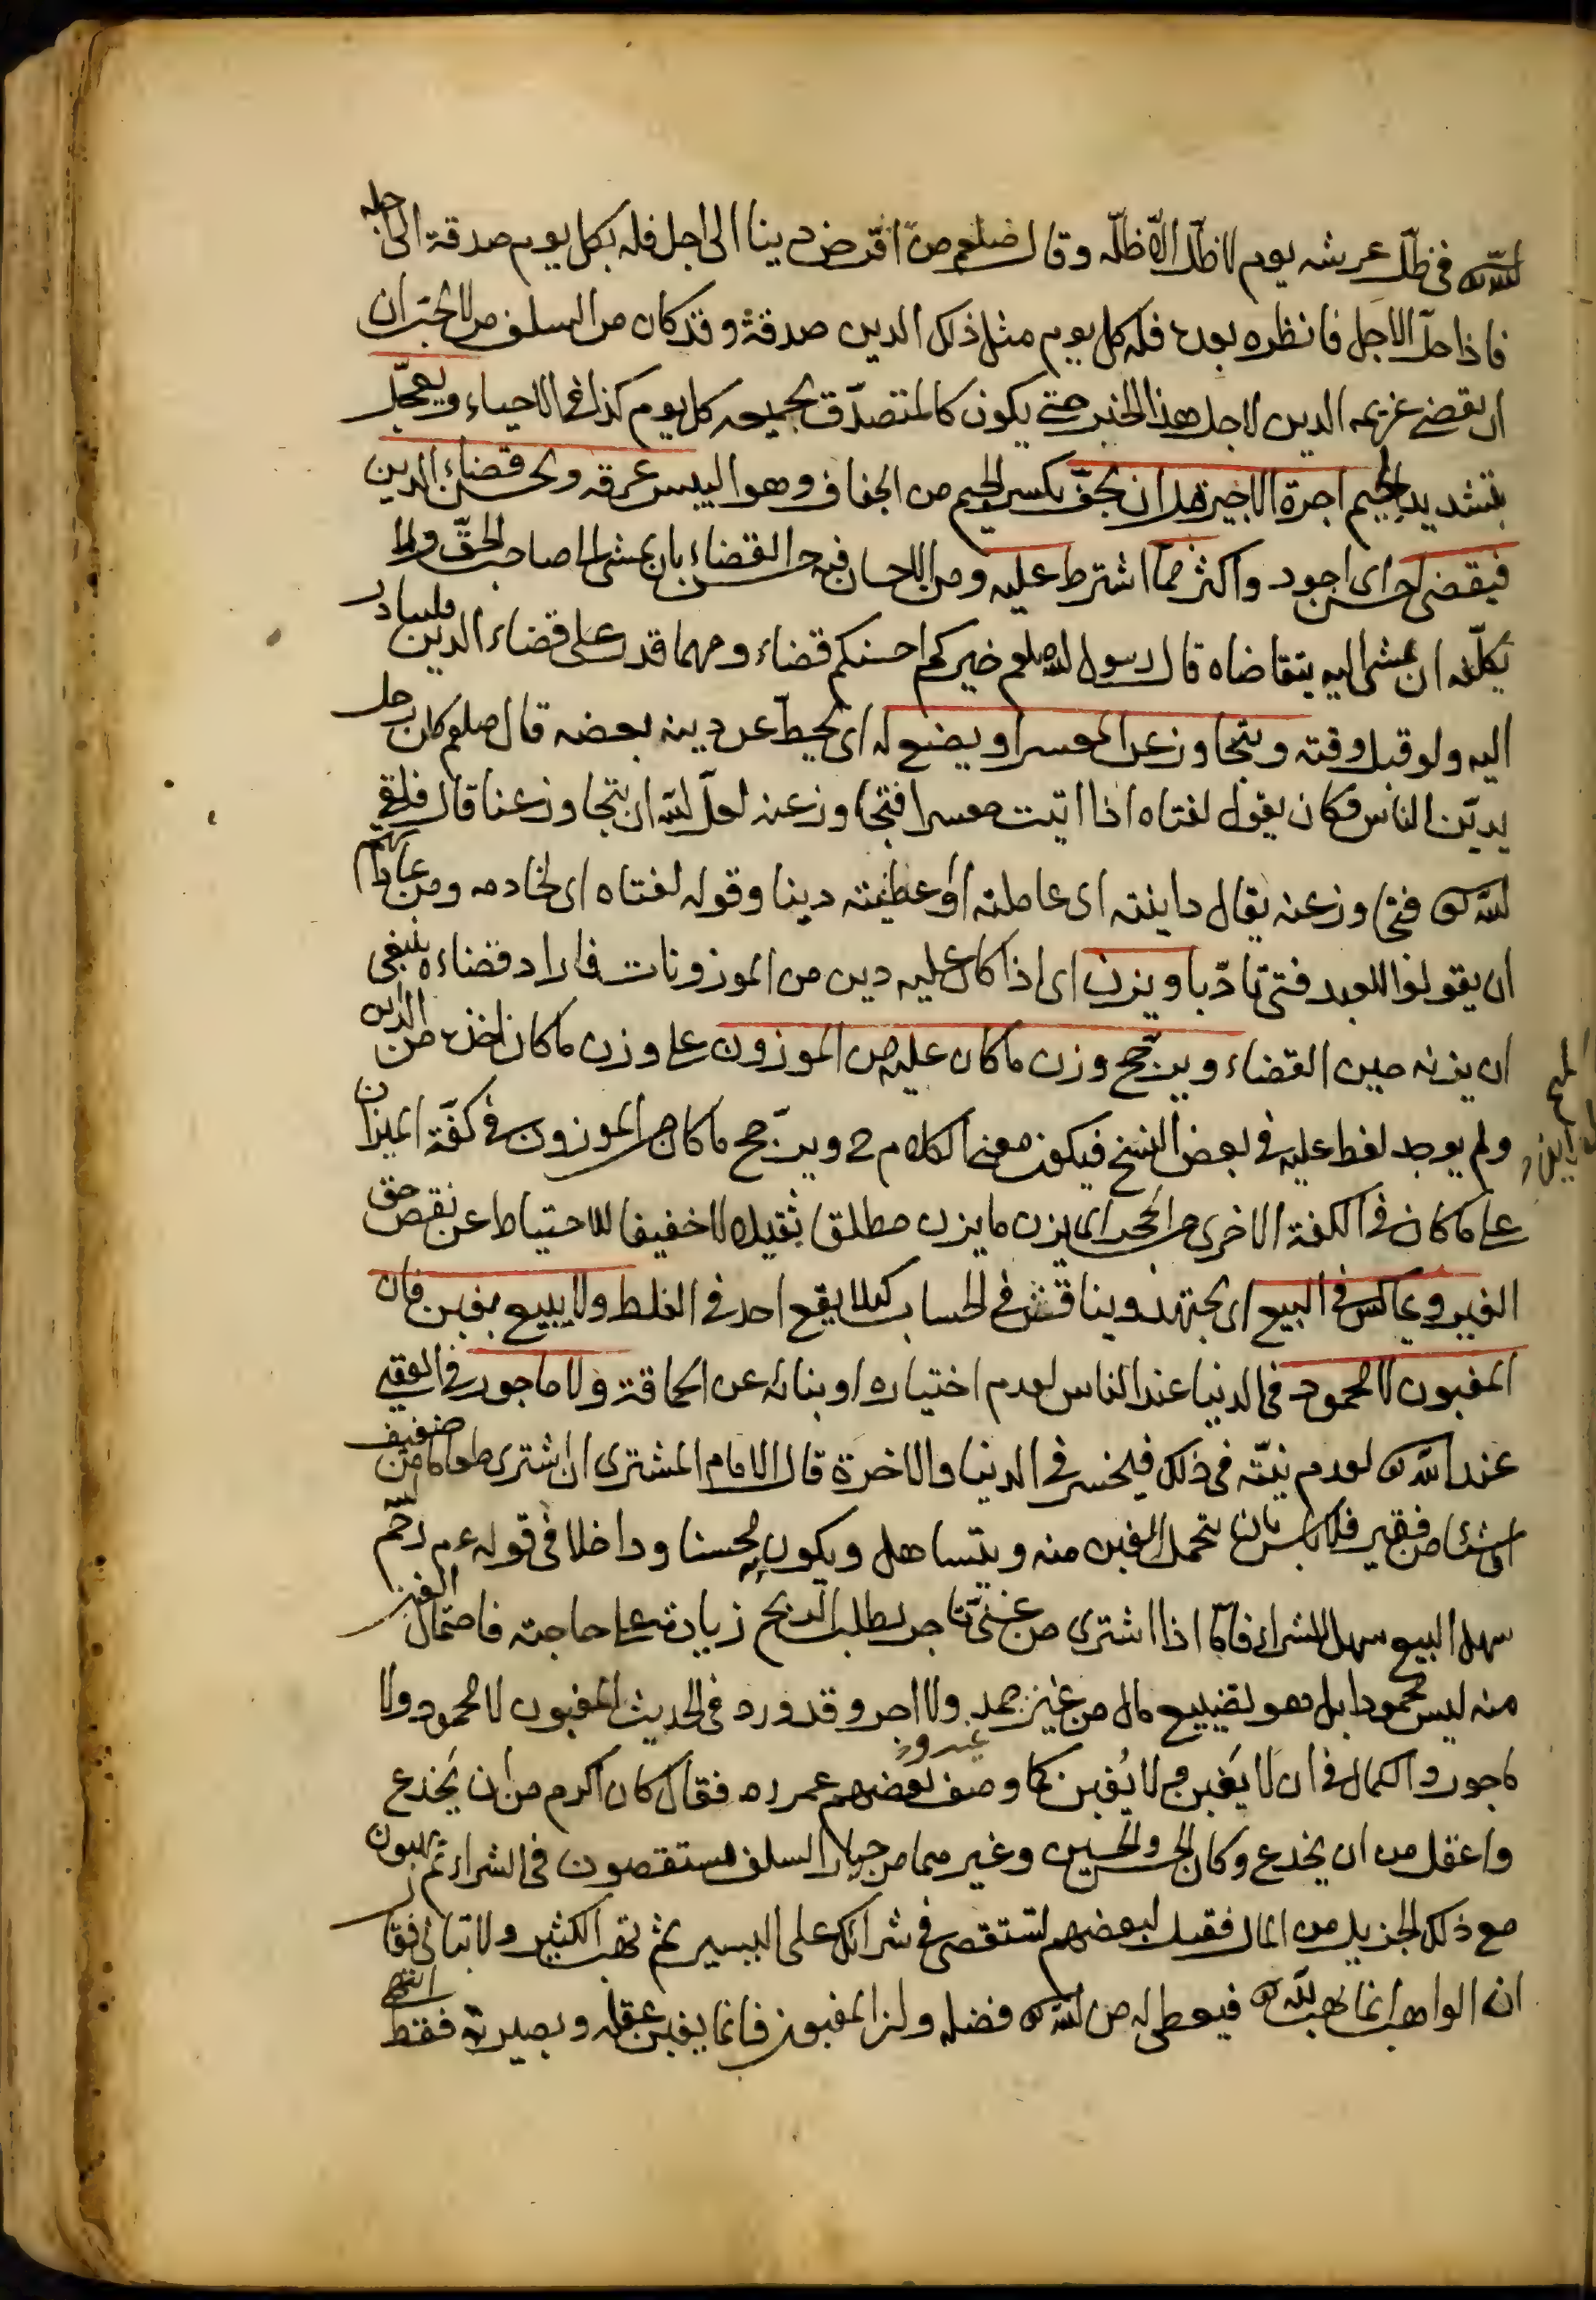 الله تعالى في ظلّ عرشه يوم لا ظلّ الّا ظلّه وقال صلعم من اقرض دينا الى اجل فله بكل يوم صدقة الى اجله
فاذا حلّ الاجل فانظره بعده فله كل يوم مثل ذلك الدين صدقة وقد كان من السلف من لا يحبّ ان
ان يقضى غريمه الدين لاجل هذا الخبر حتى يكون كالمتصدّق بجميعه كل يوم كذا في الاحياء ويعجّل
بتشديد الجيم اجرة الاجير قبل ان يجفّ بكسر الجيم من الجفاف وهو اليبس عرقه ويحسن قضاء الدين
فيقضى احسن اى اجود واكثر ممّا اشترط عليه ومن الاحسان فيه حسن القضاء بان يمشى الى صاحب الحقّ ولا
يكلّفه ان يمشى اليه يتقاضاه قال رسول الله صلعم خيركم احسنكم قضاء ومهما قدر على قضاء الدين فليبادر
اليه ولو قبل وقته ويتجاوز عن المعسر او يضع له اى يحطّ عن دينه بعضه قال صلعم كان رجل
يديّن الناس فكان يقول لفتاه اذا اتيت معسرا فتجاوز عنه لعلّ الله ان يتجاوز عنا قال فلقى
الله تعالى فتجاوز عنه يقال داينته اى عاملته او اعطيته دينا وقوله لفتاه اى لخادمه ومن عاداتهم
ان يقولوا للعبد فتى تادّبا ويزن اى اذا كان عليه دين من الموزونات فاراد قضاءه ينبغى
ان يزنه حين القضاء ويرجّح وزن ما كان عليه من الموزون على وزن ما كان اخذه من الداين
ولم يوجد لفظ عليه في بعض النسخ فيكون معنى الكلام ح ويرجّح ما كان من الموزون في كفّة الميزان
على ما كان في الكفة الاخرى من الحجر اى يزن ما يزن مطلقا ثقيلا لا خفيفا للاحتياط عن نقص حق
الغير ويماكس في البيع اى يجتهد ويناقش في الحساب كيلا يقع احد في الغلط ولا يبيع بغبن فان
المغبون لا محمود في الدنيا عند الناس لعدم اختياره او بنائه عن الحماقة ولا ماجور في العقبى
عند الله تعالى لعدم نيّته في ذلك فيخسر في الدنيا والاخرة قال الامام المشترى ان اشترى طعاما من ضعيف
او شيئا من فقير فلا باس بان يتحمل الغبن منه ويتساهل ويكون به محسنا وداخلا في قوله عم رحم الله
سهل البيع سهل الشراء فامّا اذا اشترى من غنىّ تاجر يطلب الربح زيادة على حاجته فاحتمال الغبن
منه ليس محمودا بل هو تضييع مال من غير حمد ولا اجر وقد ورد في الحديث المغبون لا محمود ولا
ماجور والكمال في ان لا يَغبن ولا يُغبن كما وصف بعضهم عمر رض فقال كان اكرم من ان يَخدع
واعقل من ان يخدع وكان الحسن والحسين وغيرهما من خيار السلف يستقصون في الشراء ثم يهبون
مع ذلك الجزيل من المال فقيل لبعضهم تستقصى في شرائك على اليسير ثم تهب الكثير ولا تبالى فقال
ان الواهب انما يهب لله تعالى فيعطى له من الله تعالى فضله وان المغبون فانما يغبن عقله وبصيرته فقط انتهى